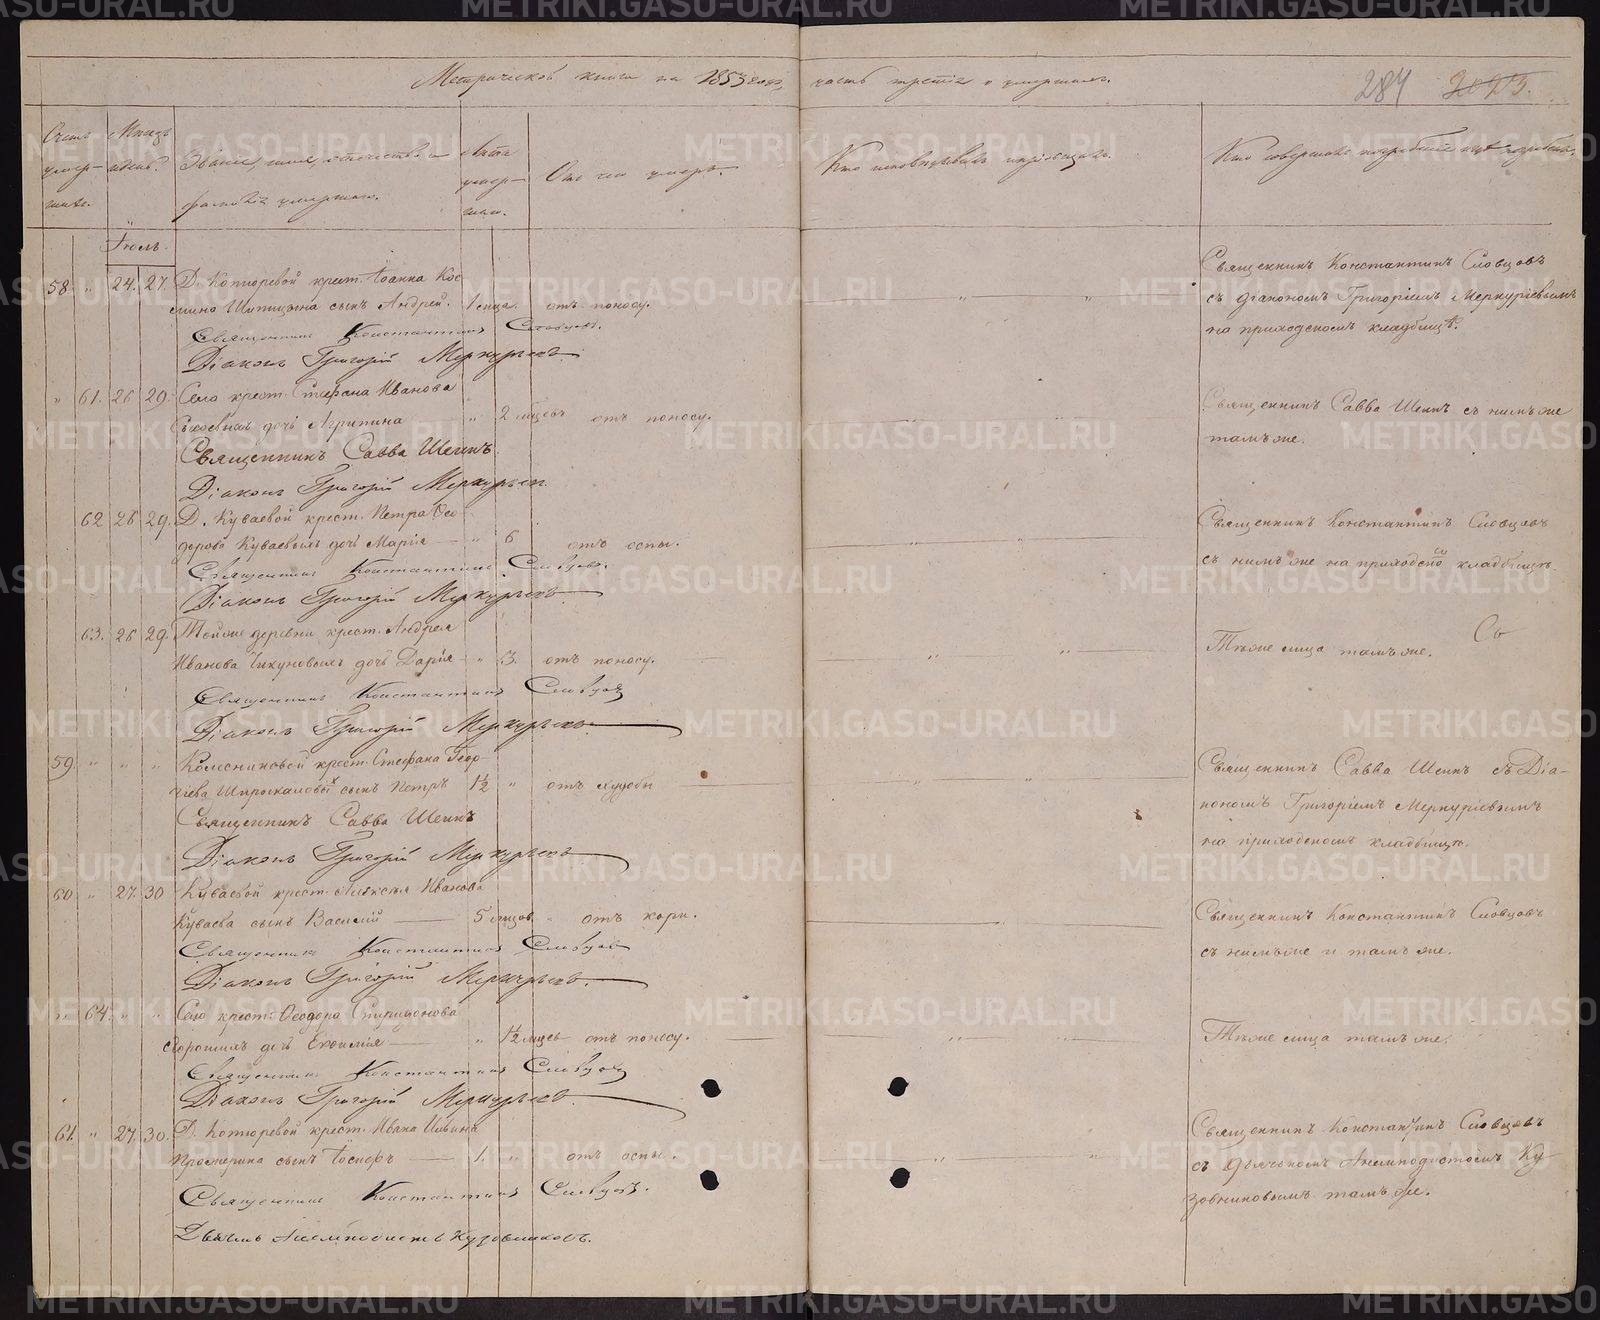 Метрической книги на 1853 годъ, часть третія о умершихъ.
284 2023.
Счетъ умер-шихъ.
Мѣсяцъ и день.
Званіе, имя, отечество и фамилія умершаго.
Лѣта умер-шаго.
Отъ чего умеръ.
Кто исповѣдывалъ и пріобщалъ.
Кто совершалъ погребеніе и гдѣ погребены.
Іюль.
58 " 24. 27. Д. Копторевой крест. Іоанна Кос-
мина Шипицына сынъ Андрей. 1 мѣсца. отъ поносу.
Священникъ Константинъ Словцовъ.
Діаконъ Григорій Меркурьевъ.
Священникъ Константинъ Словцовъ
съ діакономъ Григоріемъ Меркуріевымъ
на приходскомъ кладбищѣ.
" 61. 26 29. Села крест. Стефана Иванова
дочь Агрипина " 2 мѣсцовъ отъ поносу.
Священникъ Савва Шеинъ.
Діаконъ Григорій Меркурьевъ.
Священникъ Савва Шеинъ съ нимъ же
тамъ же.
62 26 29. Д. Куваевой крест. Петра Ѳео-
дорова Куваевыхъ дочь Марія " 6 отъ оспы.
Священникъ Константинъ Словцовъ.
Діаконъ Григорій Меркурьевъ
Священникъ Константинъ Словцовъ
съ нимъ же на приходско кладбищѣ.
63. 26 29. Тойже деревни крест. Андрея
Иванова Чикуновыхъ дочь Дарія " 3. отъ поносу.
Священникъ Константинъ Словцовъ
Діаконъ Григорій Меркурьевъ.
Тѣже лица тамъ же.
59. " " " Колесниковой крест. Стефана Геор-
гіева сынъ Петръ 1½ " отъ худобы
Священникъ Савва Шеинъ
Діаконъ Григорій Меркурьевъ
Священникъ Савва Шеинъ съ Діа-
кономъ Григоріемъ Меркуріевымъ
на приходскомъ кладбищѣ.
60 " 27. 30 Куваевой крест. Алексѣя Иванова
Куваева сынъ Василій 5 мѣсцов " отъ кори.
Священникъ Константинъ Словцов
Діаконъ Григорій Меркурьевъ.
Священникъ Константинъ Словцовъ
съ нимъ же и тамъ же.
" 64. " " Села крест. Ѳеодора Спиридонова
дочь Евѳимія " 1½ мѣсц отъ поносу.
Священникъ Константинъ Словцов
Діаконъ Григорій Меркурьевъ.
Тѣже лица тамъ же.
61. " 27. 30. Д. Копторевой крест. Ивана Ильина
сынъ Іосифъ 1. " отъ оспы.
Священникъ Константинъ Словцовъ.
Дьячекъ Анемподистъ Кузовниковъ.
Священникъ Константинъ Словцовъ
съ дьячкомъ Анемподистомъ Ку-
зовниковымъ тамъ же.
METRIKI.GASO-URAL.RU